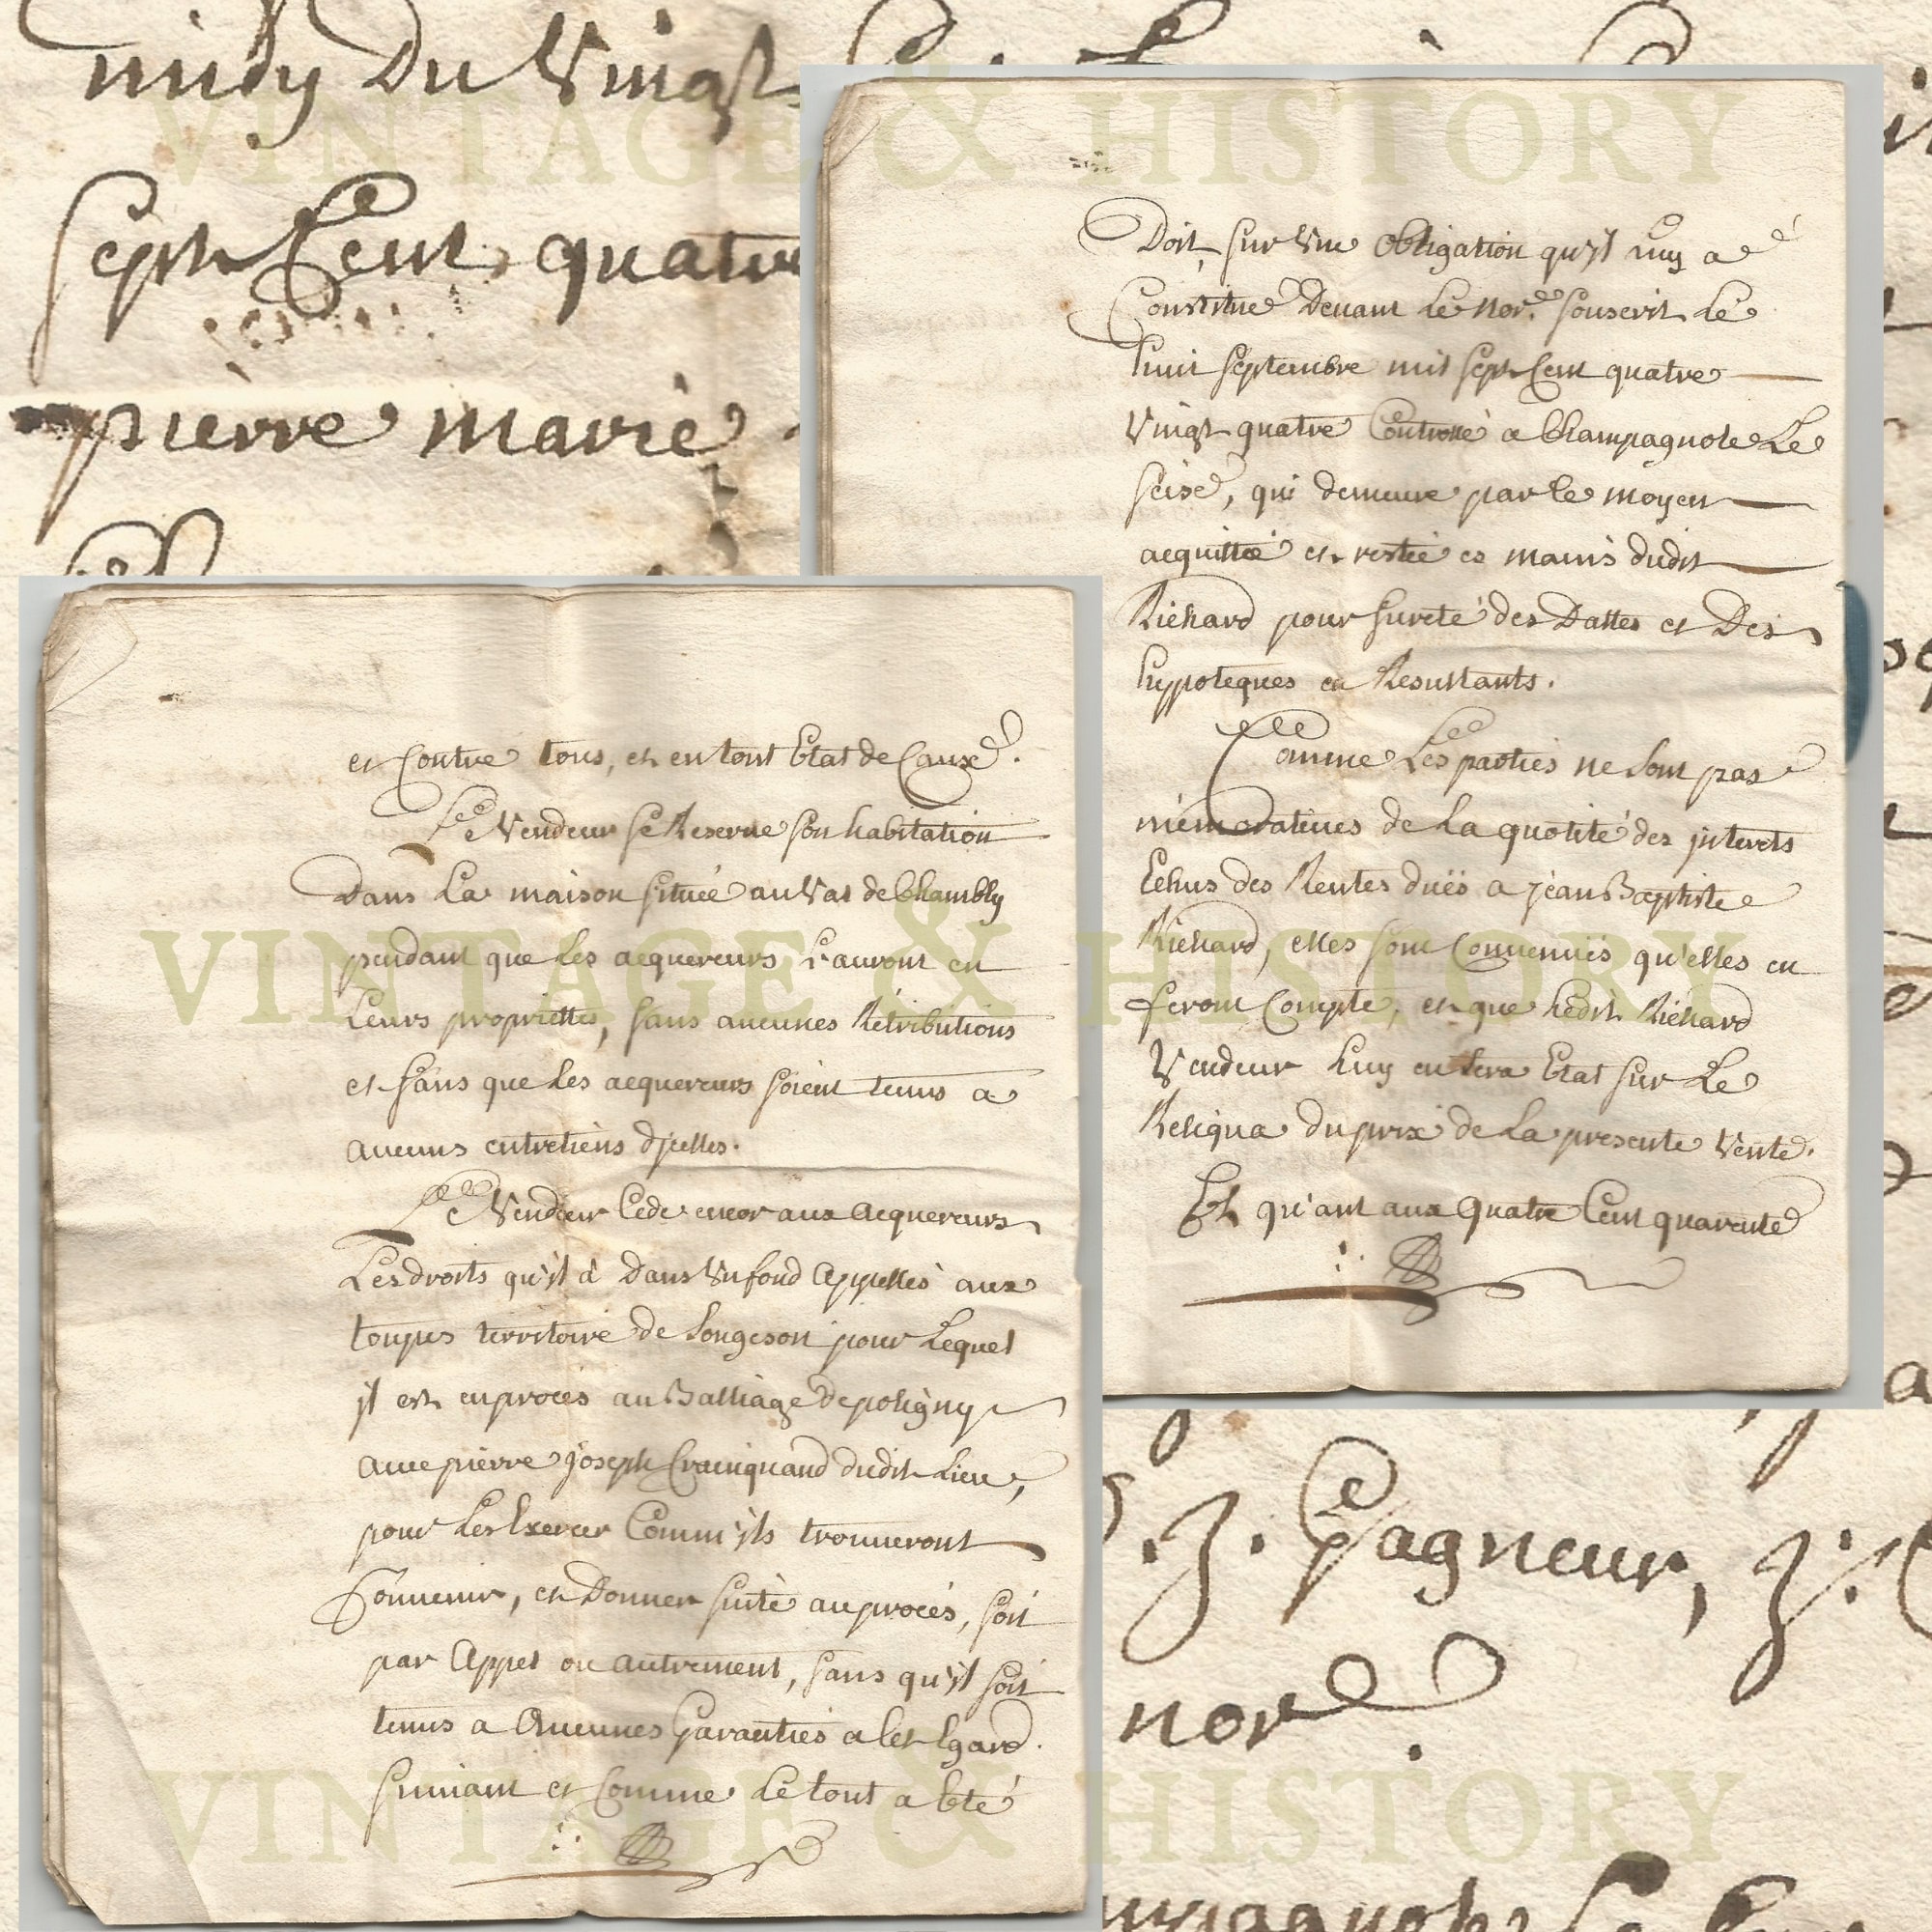 midy Du Vingt
Sept Cent quatre
pierre marie
VINTAGE & HISTORY
Doit sur Vne obligation qu'il luy a
Constitué Devant Le nore. souscrit Le
huit septembre mil sept Cent quatre
Vingt quatre Controllé a Champagnole Le
seise, qui demeure par le moyen
acquittée et restée es mains dudit
Richard pour sureté des Dattes et Des
hypoteques en Resultants.
Comme Les parties ne sont pas
mémoratives de La quotité des jnterets
Echus des Rentes duës a jean Baptiste
Richard, elles sont Convenuës qu'elles en
feront Compte, et que Ledit Richard
Vendeur Luy en fera Etat sur Le
Reliqua du prix de La presente Vente.
Et qu'ant aux quatre Cent quarente
et Contre tous, et en tout Etat de Cause.
Le Vendeur se Reserve son habitation
Dans La maison située au Val de Chambly
pendant que Les acquereurs L'auront en
Leurs propriettés, sans aucunes Rétributions
et sans que Les acquereurs soient tenus a
aucuns entretiens d'jcelles.
VINTAGE & HISTORY
Le Vendeur Cede encor aux acquereurs
Les droits qu'il a Dans Vn fond Appellés aux
toupes territoire de Songeson pour Lequel
jl est en procès au Balliage de poligny
avec pierre joseph Crainquand dudit Lieu,
pour Les Exercer Comm'jls trouveront
Convenir, et Donner suite au procès, soit
par Appel ou autrement, sans qu'il soit
tenus a Aucunes Garanties a Cet Egard.
suivant et Comme Le tout a Eté
J. Gagneur, J.
nore.
VINTAGE & HISTORY